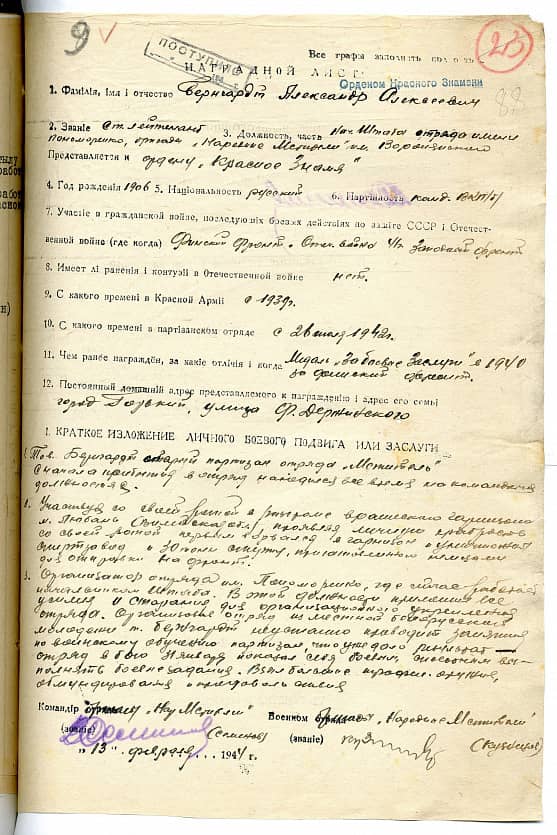 9
ПОСТУПИЛО
25
Все графи заполнять
НАГРАДНОЙ ЛИСТ
Орденом Красного Знамени
1. Фамілія, імя і отчество Бернгардт Александр Алексеевич
2. Званіе Ст. лейтенант 3. Должность, часть Нач. Штаба отряда имени
Пономаренко, бригада „Народные Мстители" им. Воронянского
Представляется к ордену „Красное Знамя"
4. Год рождения 1906 5. Національность русский 6. Партійность канд. ВКП/б/
7. Участіе в гражданской войне, последующіх боевых действіях по защіте СССР і Отечест-
венной войне (где когда) Финский фронт. Отеч. война Западный фронт
8. Имеет лі раненія і контузіі в Отечественной войне нет.
9. С какого времені в Красной Арміі с 1939г.
10. С какого временi в партізанском отряде с 28 1942г.
11. Чем ранее награждён, за какіе отлічія і когда Медаль „За боевые Заслуги" в 1940
за финский фронт.
12. Постоянный домашній адрес представляемого к награждению і адрес его семьі
город Горький, улица Ф. Держинского
I. КРАТКОЕ ИЗЛОЖЕНИЕ ЛИЧНОГО БОЕВОГО ПОДВИГА ИЛИ ЗАСЛУГИ
Тов. Бернгардт старый партизан отряда „Мститель"
С начала прибытия в отряд находился все время на командных
должностях.
Участвуя со своей ротой в разгроме вражеского гарнизона
м. Любань проявляя личную храбрость
со своей ротой первым ворвался в гарнизон и уничтожил
спиртзавод и тонн спирту, приготовленным немцами
для отправки на фронт.
3. Организатор отряда им. Пономаренко, где сейчас работает
начальником Штаба. В этой должности приложил все
усилия и старания для организационного укрепления
отряда. Организовав отряд из местной белорусской
молодежи т. Бернгардт неустанно проводит занятия
по воинскому обучению партизан,
отряд в бою показал себя боевым, способным вы-
полнять боезадания.
Командір „Нар. Мстители" Военком „Народные Мстители"
(званіе) (Семенов) (званіе)
„13" февраля 1944 г.